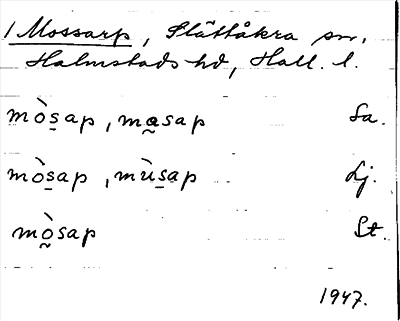 1 Mossarp, Slättåkra sn,
Halmstads hd, Hall. l.
mòs̲ap, ma̰sap Sa.
mòs̲ap, mùs̲ap Lj.
mò̰sap St.
1947.